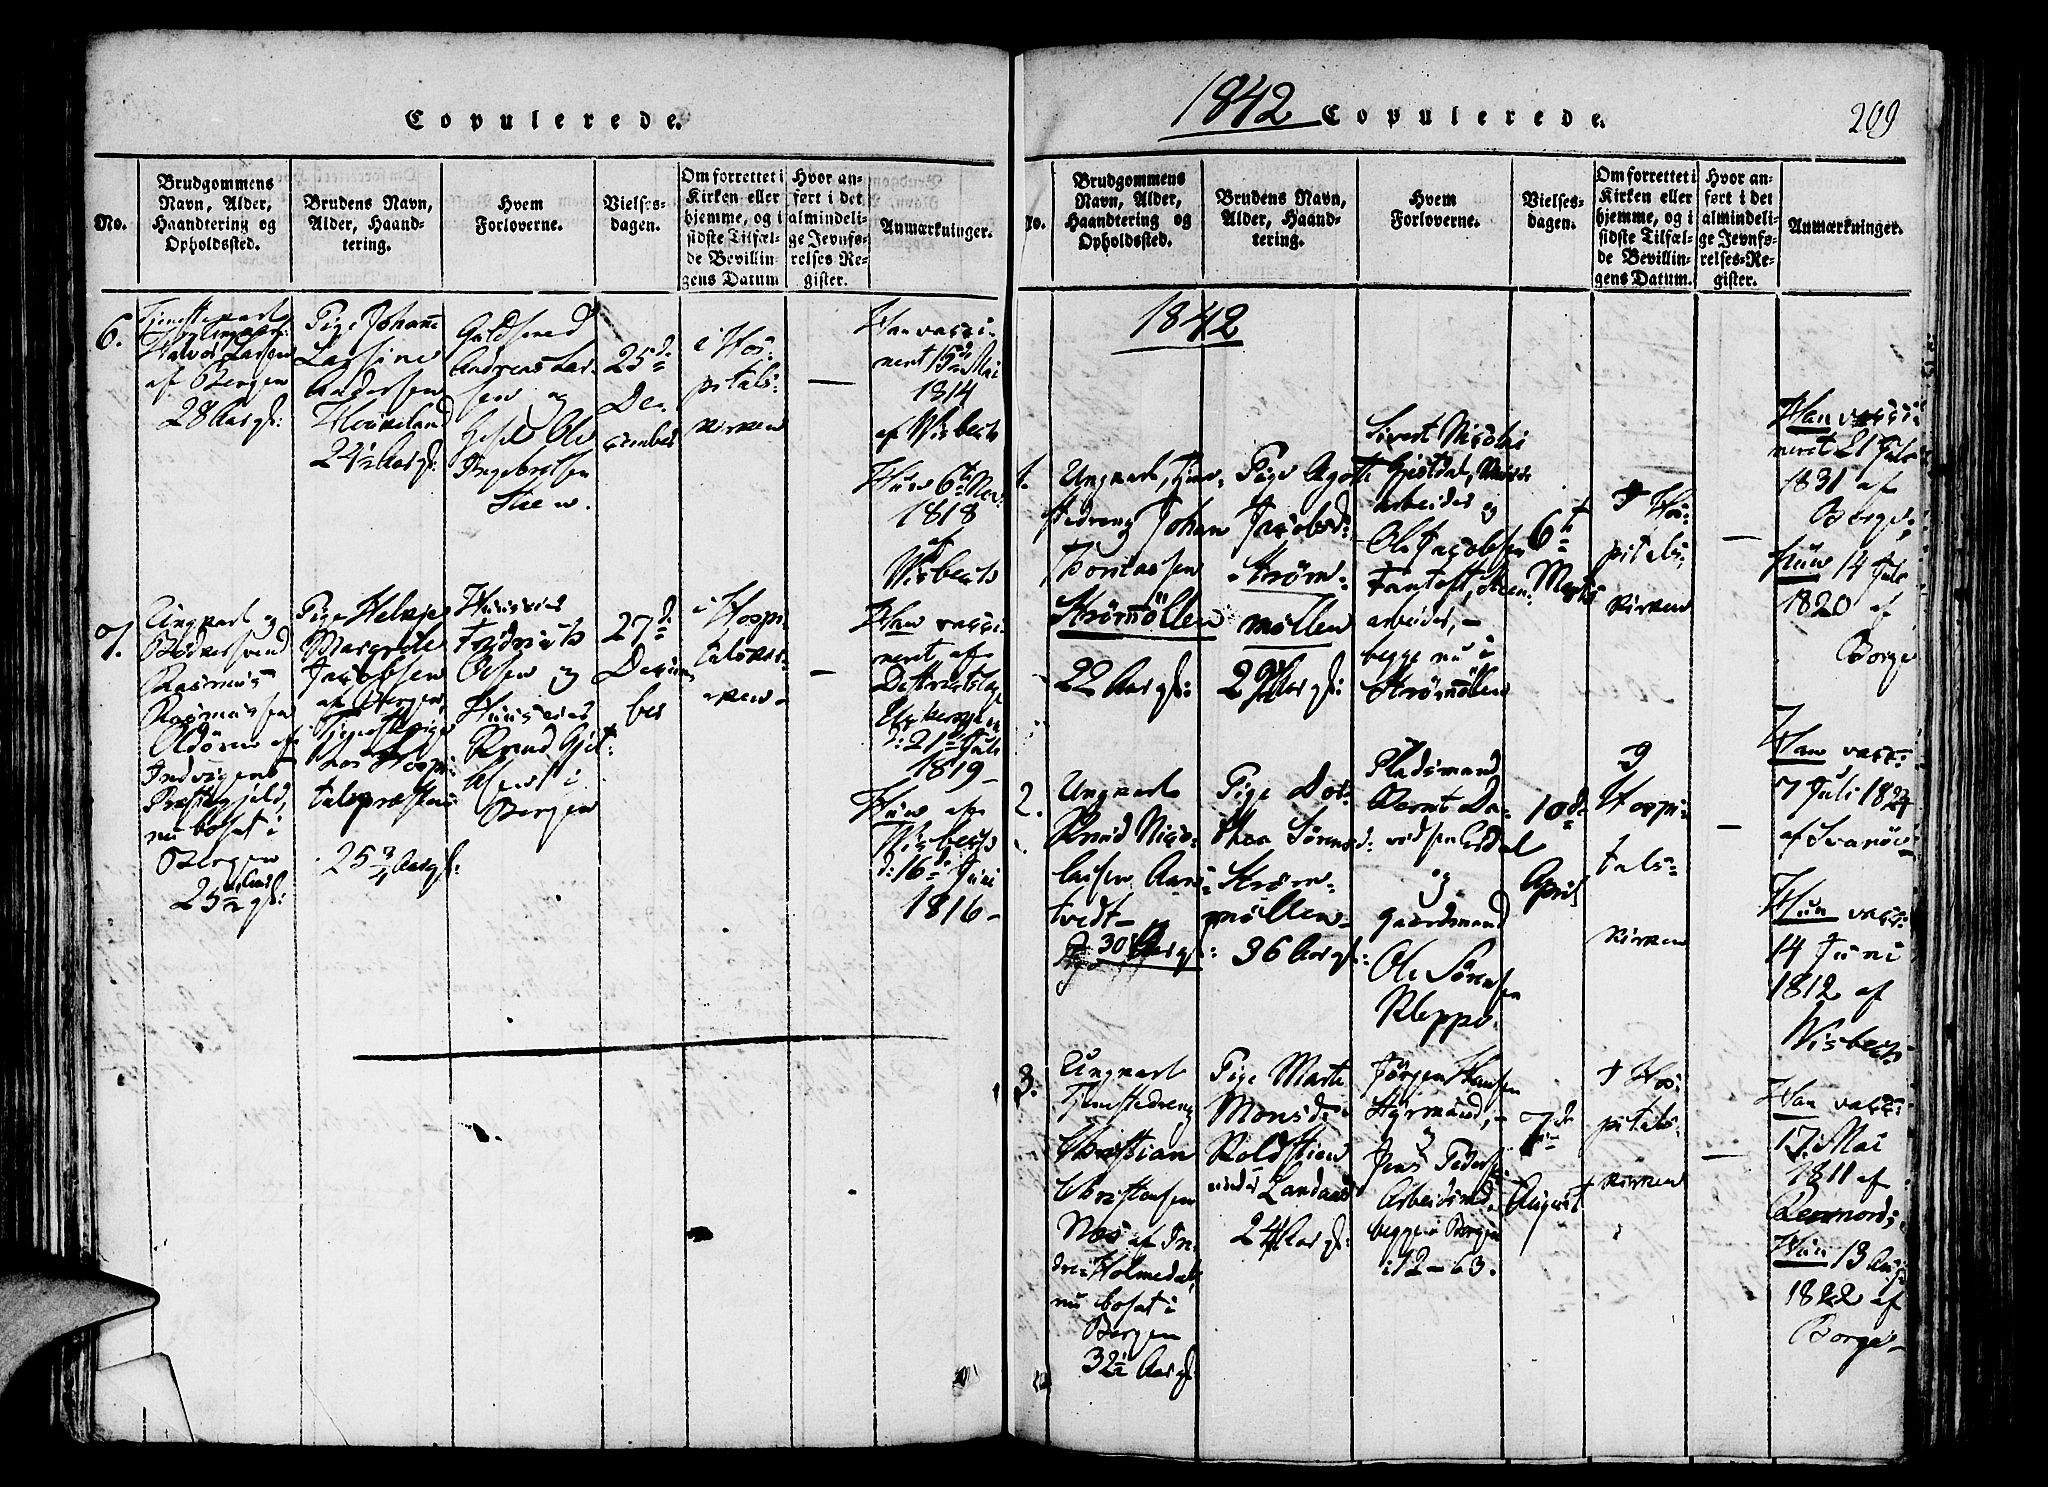 Copulerede.
No.
Brudgommens
Navn, Alder,
Haandtering og
Opholdssted.
Brudens Navn,
Alder, Haand-
tering.
Hvem
Forloverne.
Vielses-
dagen.
Om forrettet i
Kirken eller
hjemme, og i
sidste Tilfæl-
de Bevillin-
gens Datum
Hvor an-
ført i det
almindeli-
ge Jevnfø-
relses-Re-
gister.
Anmærkninger.
6.
Halvor Larsen
af Bergen
28 Aar gl:
Pige Johanne
Larsine
Andersen
Houkeland
24½ Aar gl:
Andreas Lar-
sen og
Ole
Ingebretsen
25de
De-
cember
i Hos-
pitals-
kirken
—
Han vacci-
neret 15de Mai
1814
af Wisbech
Hun 6te Nov:
1818
af
Wisbech
7.
Ungkarl og
Bødkersvend
Rasmus
Rasmussen
Oldøren af
Indvigens
Præstegjeld,
nu bosat i
Bergen
25½ Aar gl:
Pige Helsje
Margrethe
Jacobsen
af Bergen,
Tjenestepige
hos Hospi-
talspræsten
25¾ Aar gl:
Fredrich
Olsen og
Knud Gjet-
lesen i
Bergen
27de
Decem-
ber
i Hospi-
talskir-
ken
—
Han vacci-
neret af
Districtslæge
d: 21de Juli
1819
Hun af
Wisbech
d: 16de Juni
1816
1842 Copulerede.
209
No.
Brudgommens
Navn, Alder,
Haandtering og
Opholdssted.
Brudens Navn,
Alder, Haand-
tering.
Hvem
Forloverne.
Vielses-
dagen.
Om forrettet i
Kirken eller
hjemme, og i
sidste Tilfæl-
de Bevillin-
gens Datum.
Hvor an-
ført i det
almindeli-
ge Jevnfø-
relses-Re-
gister.
Anmærkninger.
1842
1.
Ungkarl, Tjene-
stedreng Johan
Thomassen
Strømöllen
22 Aar gl:
Pige Agote
Jacobsd:
Strøm-
møllen
29 Aar gl:
Sivert Nicolai
Gjestdal,
arbeider og
Ole Jacobsen
Fantoft,
arbeider,
begge nu i
Strømölen
6te
Marts
i Hos-
pitals-
kirken
—
Han vacci-
neret 21 Juli
1831 af
Borge,
Hun 14 Juli
1820 af
Borge
2.
Ungkarl
Knud Nico-
laisen Aar-
tvedt
30 Aar gl:
Pige Dor-
thea Sörensd:
Strøm-
møllen
36 Aar gl:
Pladsmand
Bernt Da-
vidsen
og
Gaardmand
Ole Sörensen
Kleppe.
10de
April
i
Hospi-
tals-
kirken
—
Han vacc:
7 Juli 1824
af Svanöe
Hun vacc:
14 Juni
1812 af
Wisbech
3.
Ungkarl
Tjenestedreng
Christian
Christensen
Næs af In-
dre-Holmedal,
nu bosat i
Bergen
32½ Aar gl
Pige Marte
Monsd:
Koldstien
under Landaas
24 Aar gl:
Jørgen Hansen
Styrmand,
og
Jens Peders:
Arbeidsmd,
begge i Bergen
i 12-63.
7de
August
i Hos-
pitals-
kirken
—
Han vacc:
17. Mai
1811 af
Hun 13 Aug
1822 af
Borge